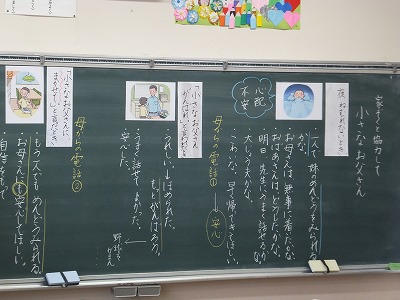 家ぞくと協力して
小さなお父さん
夜、ねむれないとき
心配
不安
一人で妹のめんどうをみられる
かな。
お母さんは無事に着いたかな。
おばあさんは、どうしたかな。
明日、先生にうまく話せるかな。
大じょう夫かな。
こわいな。早く帰ってきてほしい。
母からの電話①→安心
「小さなお父さん
がんばれ。」と言われたとき
うれしい。ほめられた。
もっとがんばろう。
うまく話せてよかった。
安心した。
「小さなお父さんに
まかせて。」と言ったとき
母からの電話②
もう一人でもめんどうみられる。
お母さんに安心してほしい。
・自信をもって